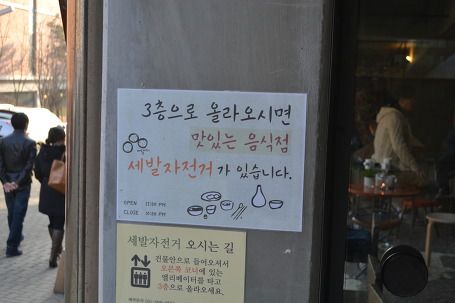 3층으로 올라오시면
맛있는 음식점
세발자전거가 있습니다.
OPEN
CLOSE
세발자전거 오시는 길
건물안으로 들어오셔서
오른쪽 코너에 있는
엘리베이터를 타고
3층으로 올라오세요.